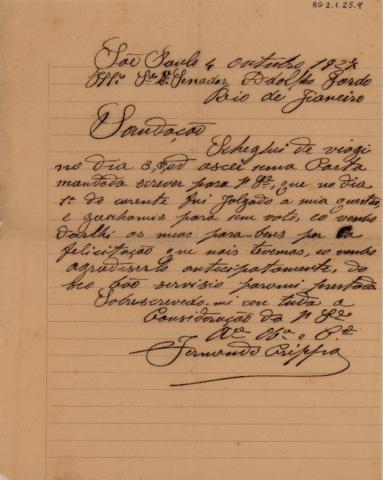 AG 2.1.25.9
São Paulo 4 outubro 1927
Illº Snr Dr Senador Adolfo Gordo
Rio de Janeiro
Saudação
Scheguei de viagi
no dia 3, ascei uma Carta
mandada screver para Vª Sª, que no dia
1º do corente foi Julgado a mia questão
e ganhamos para um voto, eo venho
darlhi os meus para bens por
felicitação que nois tivemos, eo venho
agradiserlo anticipatamente, do
seo bão servisio parami prestado
Sobrescrevodo-mi con tuda a
Consideração da Vª Sª
Fernando Grippa